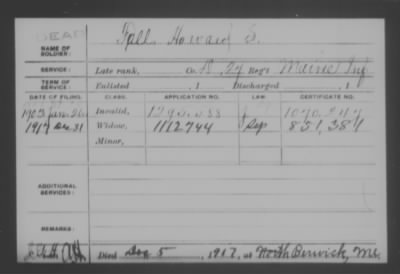 DEAD
NAME OF SOLDIER: Fall Howard S.
SERVICE: Late rank, Co. B, 27 Reg't Maine Inf
TERM OF SERVICE: Enlisted , 1 Discharged , 1
DATE OF FILING. CLASS. APPLICATION NO. LAW. CERTIFICATE NO.
1903 Invalid,
1917 Dec 31 Widow, 1112744 Sep 851,384
Minor,
ADDITIONAL SERVICES:
REMARKS:
Died Dec 5, 1917, at North Berwick, Me.